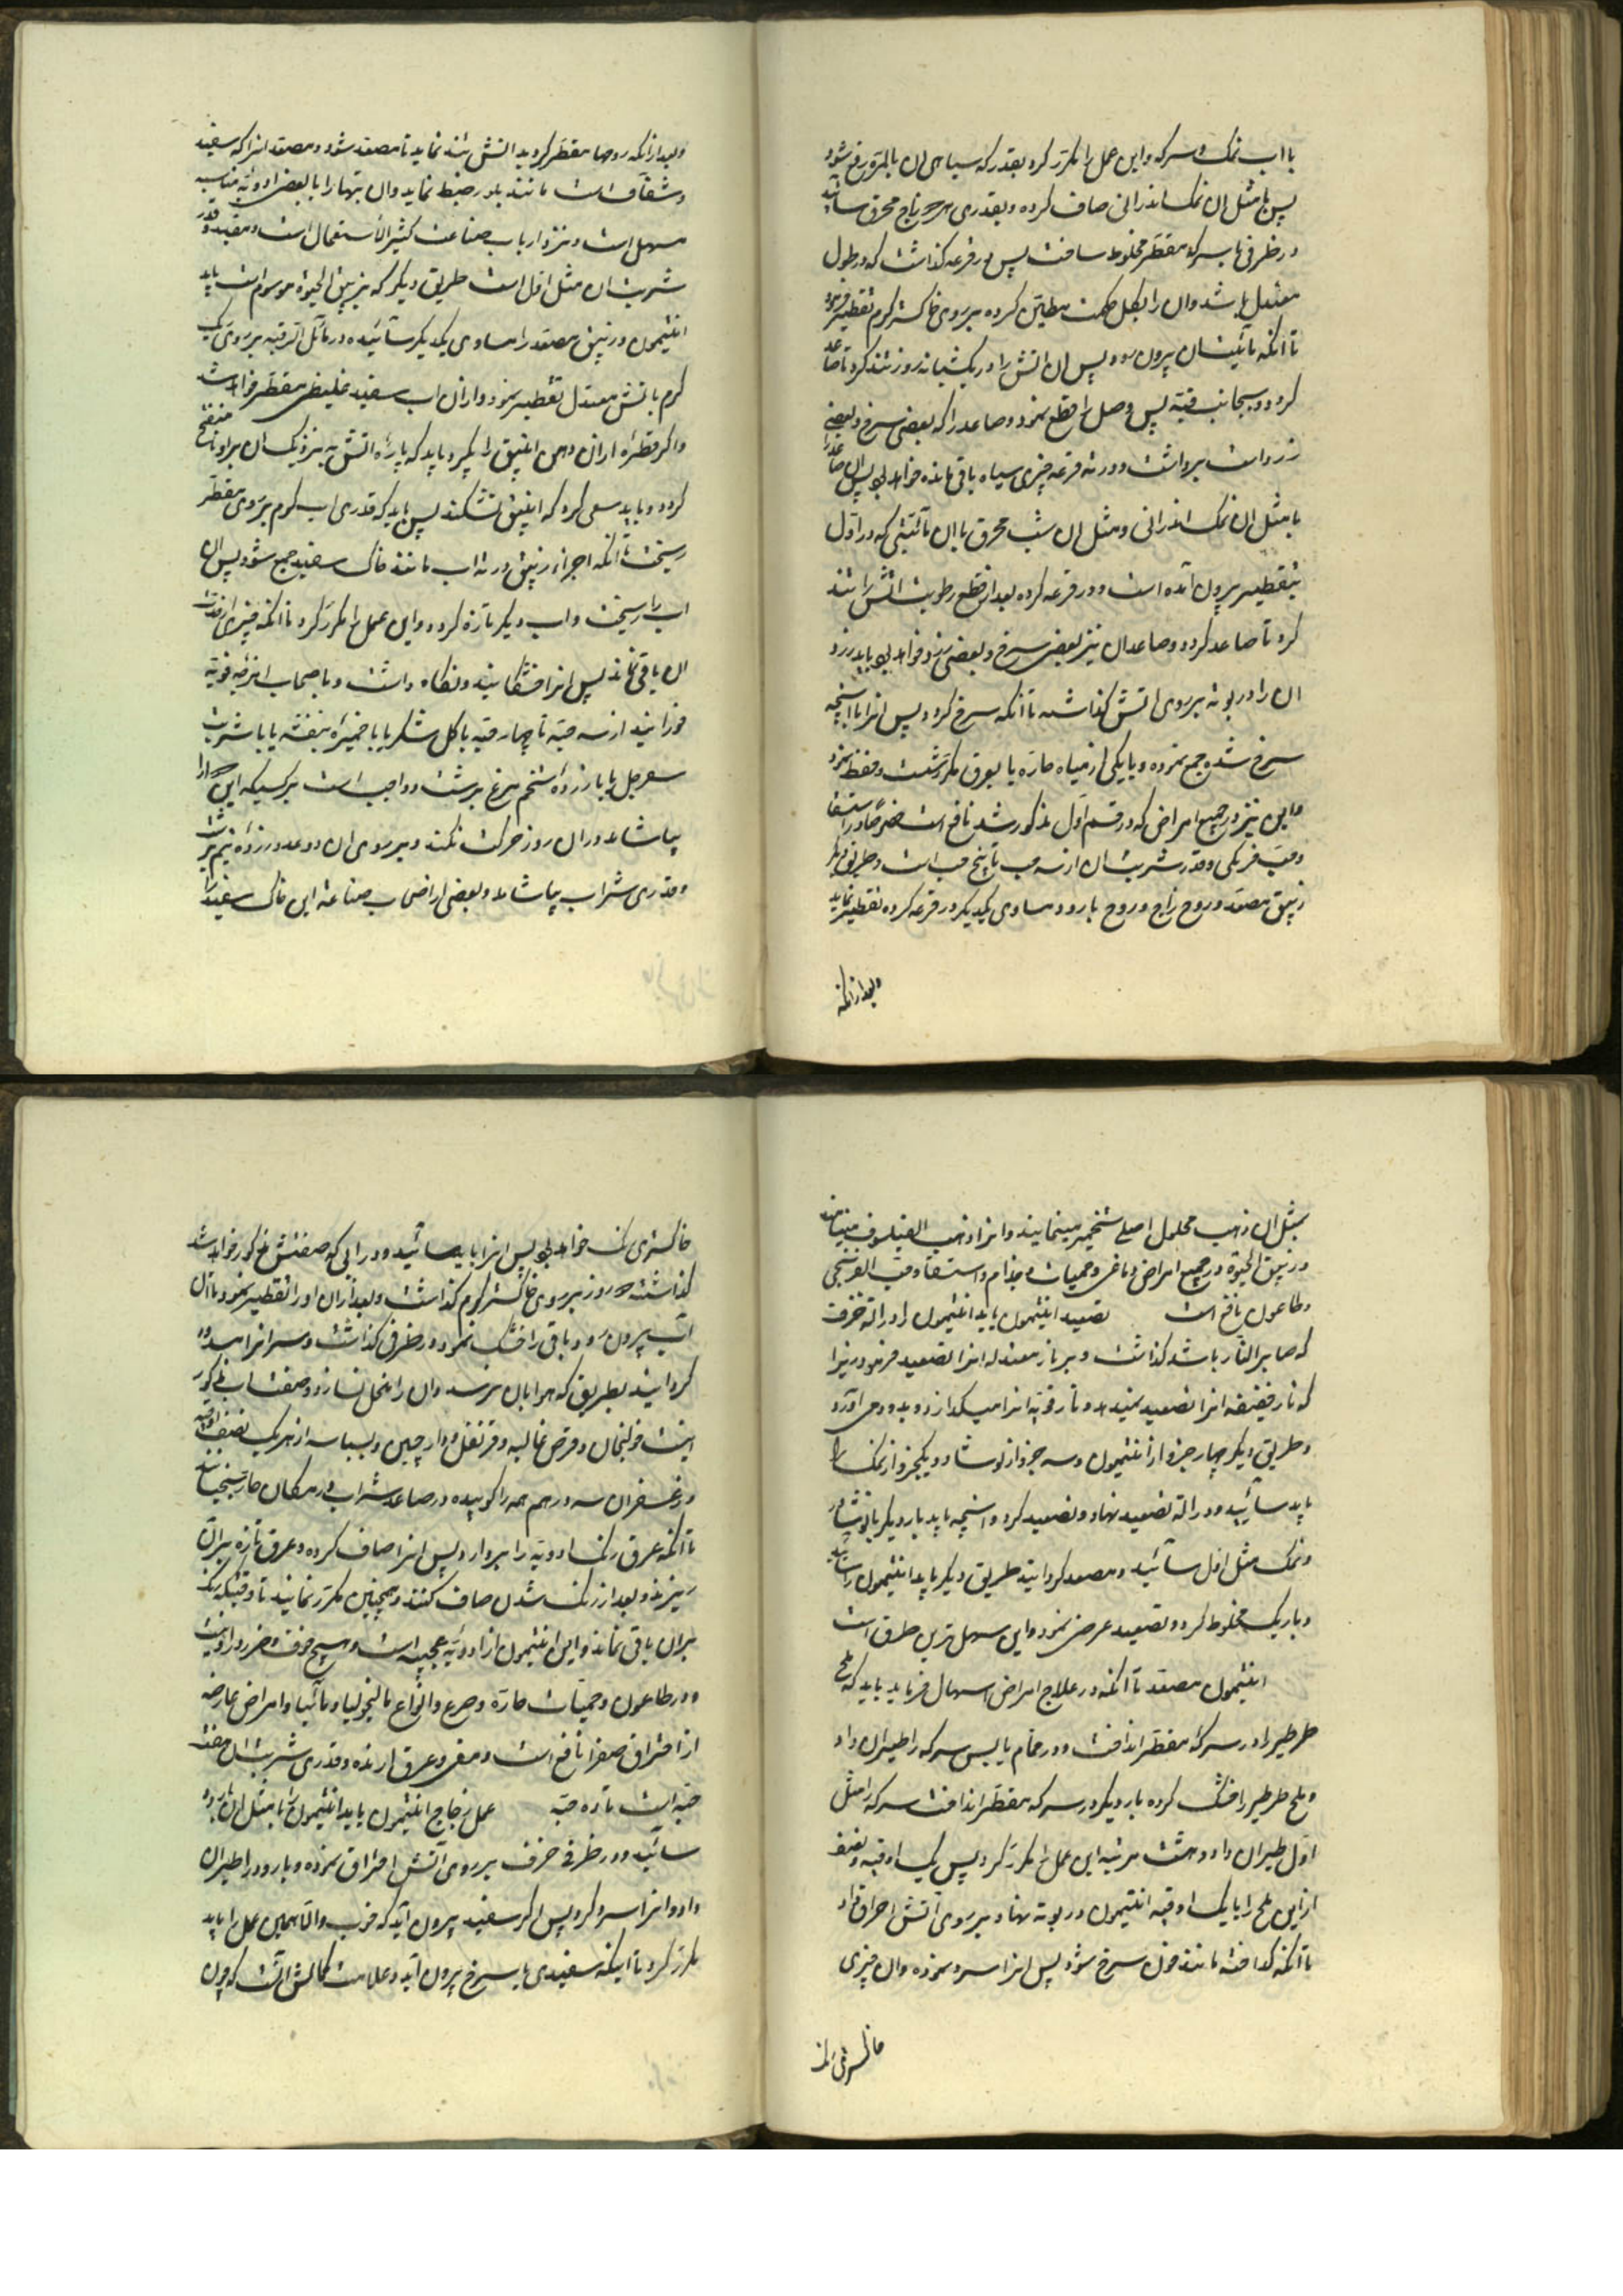 با آب نمک و سرکه و این عمل را مکرر کرد بقدر که سیاهی ان بالمره رفع شود
پس با مثل ان نمک اندرانی صاف کرده و بقدری زاج محرق سائید
در ظرفی با سرکه مقطر مخلوط ساخت پس در قرعه گذاشت که در طول
معتدل باشد و ان را بگل حکمت مطین کرده بر روی خاکستر گرم تقطیر فرمود
تا انکه مائیت ان بیرون رود پس ان اتش را در یکشبانه روز تند کرد تا صاعد
گردد بجانب قبه پس وصل را قطع نمود و صاعد را که بعضی سرخ و بعضی
زرد است برداشت و در ته قرعه چیزی سیاه باقی مانده خواهد بود پس ان صاعد را
با مثل ان نمک اندرانی و مثل ان شب محرق با ان مائیتی که در اول
بتقطیر بیرون آمده است در قرعه کرده بعد از قطع رطوبت اتش را تند
کرد تا صاعد گردد و صاعد ان نیز بعضی سرخ و بعضی زرد خواهد بود باید زرد
ان را در بوته بر روی اتش گذاشت تا انکه سرخ گردد پس انرا با انچه
سرخ شده جمع نموده و با یکی از میاه حاره یا بعرق مکرر شست و حفظ نمود
و این نیز در جمیع امراض که در قسم اول مذکور شد نافع است خصوصا در استسقا
و حب فرنگی و قدر شربت ان از سه حب تا پنج حب است و طریق دیگر
زیبق مصعد و روح زاج و روح بارود مساوی یکدیگر در قرعه کرده تقطیر نماید
و بعد از انکه
و بعد از انکه روحها مقطر گردید اتش تند نماید تا مصعد شود و مصعد انرا که سفید
و شفاف است مانند بلور ضبط نماید و ان بتنهائی یا با بعض ادویه مناسبه
مسهل است و نزد ارباب صناعت کثیر الاستعمال است و مفید و قدر
شربت ان مثل اول است طریق دیگر که بزیبق الحیوة موسوم است باید
انتیمون و زیبق مصعد را مساوی یکدیگر سائیده در مائل الرقبه بر روی ریک
گرم باتش معتدل تقطیر نمود و از ان اب سفید غلیظی مقطر خواهد شد
و اگر قطره از ان دهن انبیق را بگیرد باید که پاره اتش به نزدیک ان برد تا منفتح
گردد و باید سعی کرد که انبیق نشکند پس باید که قدری اب گرم بر روی مقطر
ریخت تا انکه اجزاء زیبق در ته اب مانند خاک سفید جمع شود پس ان
اب را ریخت و اب دیگر تازه کرد و این عمل را مکرر کرد تا انکه چیزی از حدت
ان باقی نماند پس انرا خشکانید و نگاه داشت و باصحاب امزجه قویه
خورانید از سه حبه تا چهار حبه با گل شکر یا با خمیره بنفشه یا با شربت
سفرجل یا با زرده تخم مرغ نیم برشت و واجب است بر کسیکه این دوا را
بیاشامد در ان روز حرکت نکند و بر روی ان دو عدد زرده نیم برشت
و قدری شراب بیاشامد و بعضی از اصحاب صناعه این خاک سفید را
بمثل ان ذهب محلول اصلی تخمیر مینمایند و انرا ذهب الفیلسوف مینامند
و زیبق الحیوة در جمیع امراض دماغی و حمیات و جذام و استسقا و حب الفرنجی
و طاعون نافع است تصعید انتیمون باید انتیمون را در الت خزفت
که صابر النار باشد گذاشت و بر نار معتدله انرا تصعید فرمود زیرا
که نار ضعیفه انرا تصعید نمیدهد و نار قویه انرا میگدازد و بدود می آورد
و طریق دیگر چهار جزو از انتیمون و سه جزو از نوشادر و یکجزو از نمک را
باید سائید و در الة تصعید نهاد و تصعید کرد و انچه باید بار دیگر با نوشادر
و نمک مثل اول سائید و مصعد گردانید طریق دیگر باید انتیمون را سائید
و با ریک مخلوط کرد و تصعید عرض نمود و این سهل ترین طرق است
انتیمون مصعد تا انکه در علاج امراض اسهال فرماید باید که ملح
طرطیر را در سرکه مقطر انداخت و در حمام یابس سرکه را طیران داد
و ملح طرطیر را خشک کرده بار دیگر در سرکه مقطر انداخت سرکه را مثل
اول طیران داد و هشت مرتبه این عمل را مکرر کرد پس یک اوقیه و نصف
از این ملح را با یک اوقیه انتیمون در بوته نهاد بر روی آتش احراق داد
تا انکه گداخته مانند خون سرخ شود پس انرا سرد نموده و ان چیزی
خاکستری رنگ
خاکستری رنگ خواهد بود پس انرا باید سائید و در ابی که صفتش مذکور خواهد شد
گذاشته روز بر روی خاکستر گرم گذاشت و بعد از ان او را تقطیر نمود تا ان
آب بیرون رود و باقی را خشک نمود و در ظرفی گذاشت و سر انرا مسدود
گردانید بطریقی که هوا بان نرسد و ان را منحل نسازد و صفت اب مذکور
اینست خولنجان و قرص غالیه و قرنفل و دارچین و بسباسه از هر یک نصف اوقیه
و زعفران سه درهم همه را کوبیده در صاعد شراب در مکان حار بخیسانند
تا انکه عرق رنگ ادویه را بردارد پس انرا صاف کرده و عرق تازه بر ان
ریزند و بعد از رنگ شدن صاف کنند و همچنین مکرر نمایند تا وقتیکه رنگ
بران باقی نماند و این انتیمون از ادویه عجیبه است و هیچ خوف و ضرر در او نیست
و در طاعون و حمیات حاره و صرع و انواع مالیخولیا و مانیا و امراض عارضه
از احتراق صفرا نافع است و مقی و عرق ارنده و قدری شربت ان هفت
حبه است تا ده حبه عمل زجاج انتیمون باید انتیمون را با مثل ان بارود
سائید و در ظرفی خزف بر روی آتش احتراق نموده و بارود را طیران
داد و انرا سرد کرد پس اگر سفید بیرون آید که خوب والا همین عمل را باید
مکرر کرد تا اینکه سفیدی یا سرخ بیرون آید و علامت کمالش انست که چون